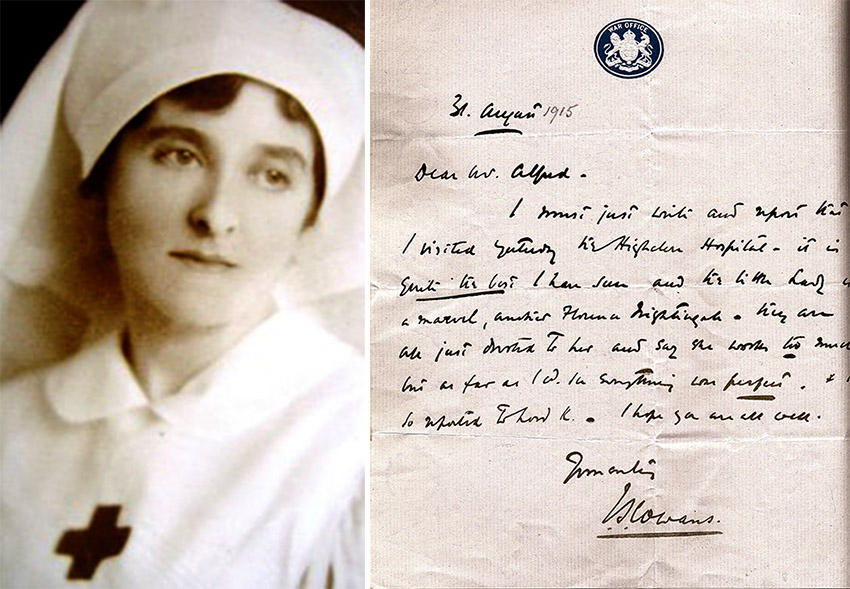 WAR OFFICE
31. August 1915
Dear Mr. Alfred -
I must just write and report that
I visited yesterday the Highclere Hospital - it is
quite the best I have seen and the little Lady
a marvel, another Florence Nightingale - they are
all just devoted to her and say she works too much
but as far as I could see everything was perfect.
so reported to Lord K. - I hope you are all well.
J.S. Cowans.